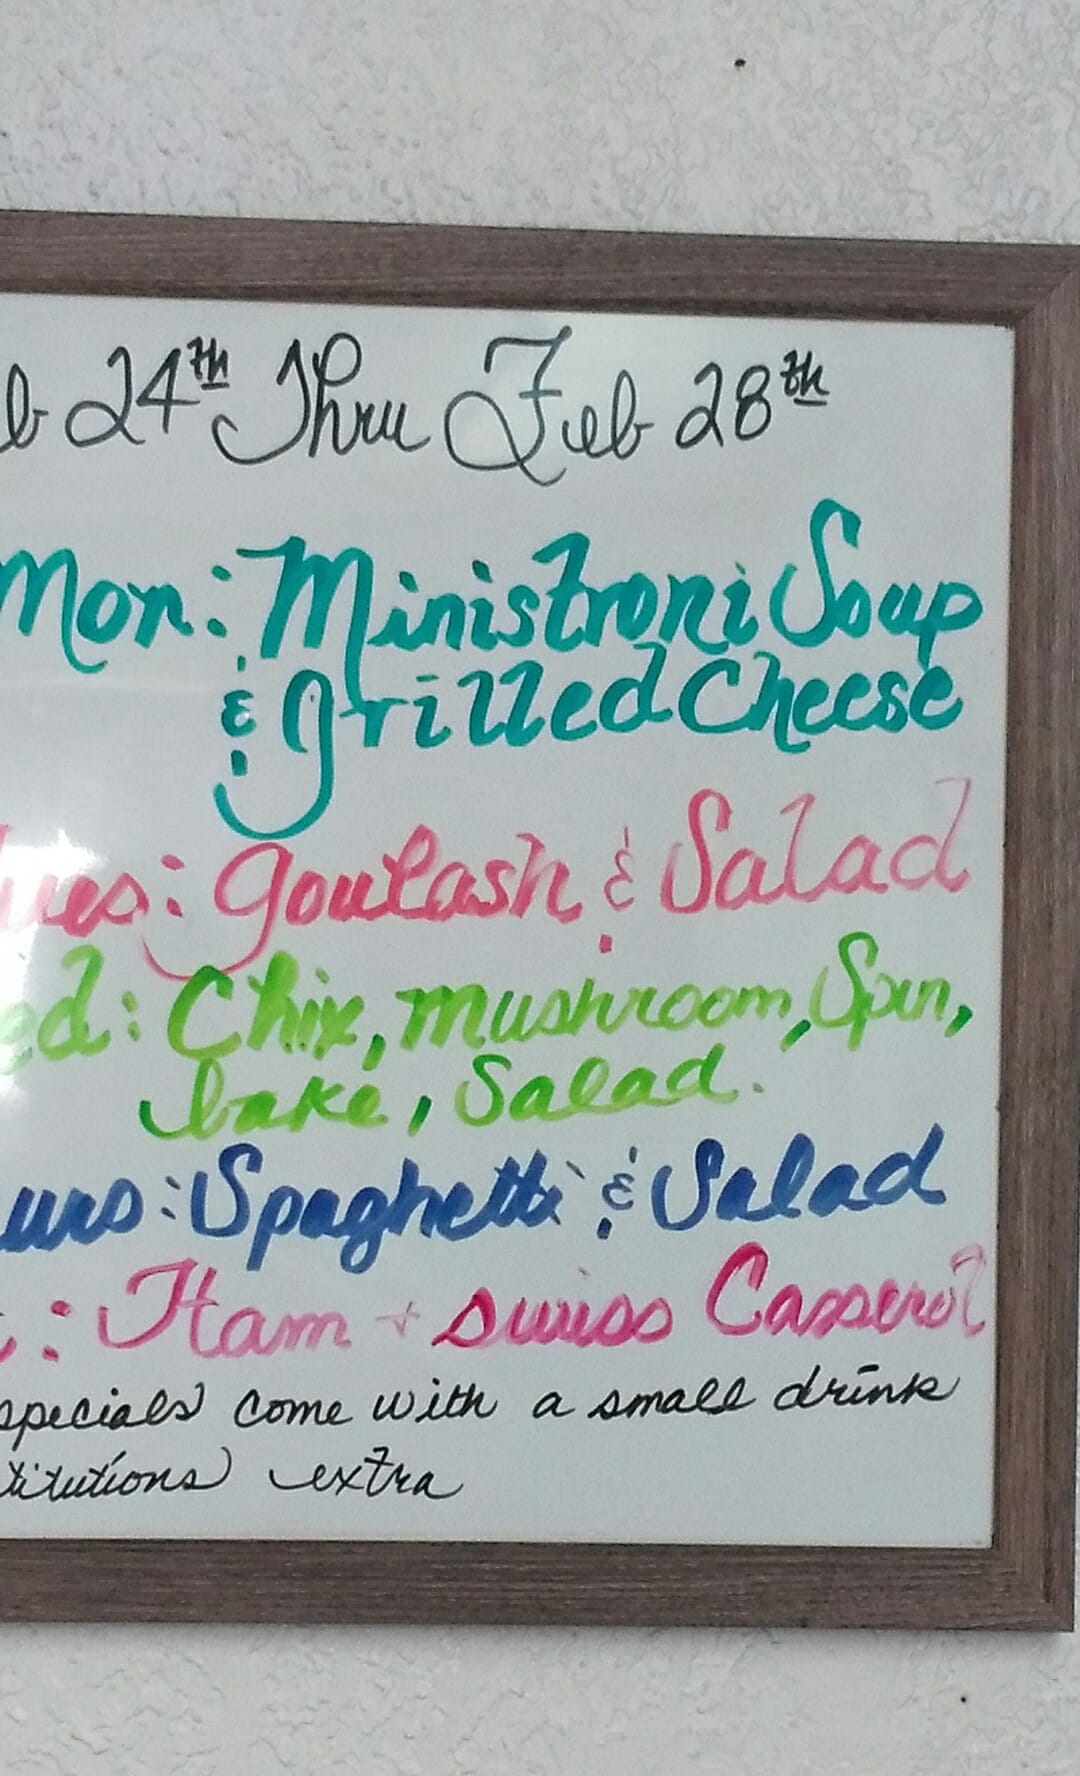 b 24th Thru Feb 28th
Mon: Ministroni Soup
& Grilled Cheese
ues: Goulash & Salad
ed: Chix, mushroom, Spin,
bake, Salad.
urs: Spaghetti & Salad
: Ham + swiss Casserol
specials come with a small drink
titutions extra